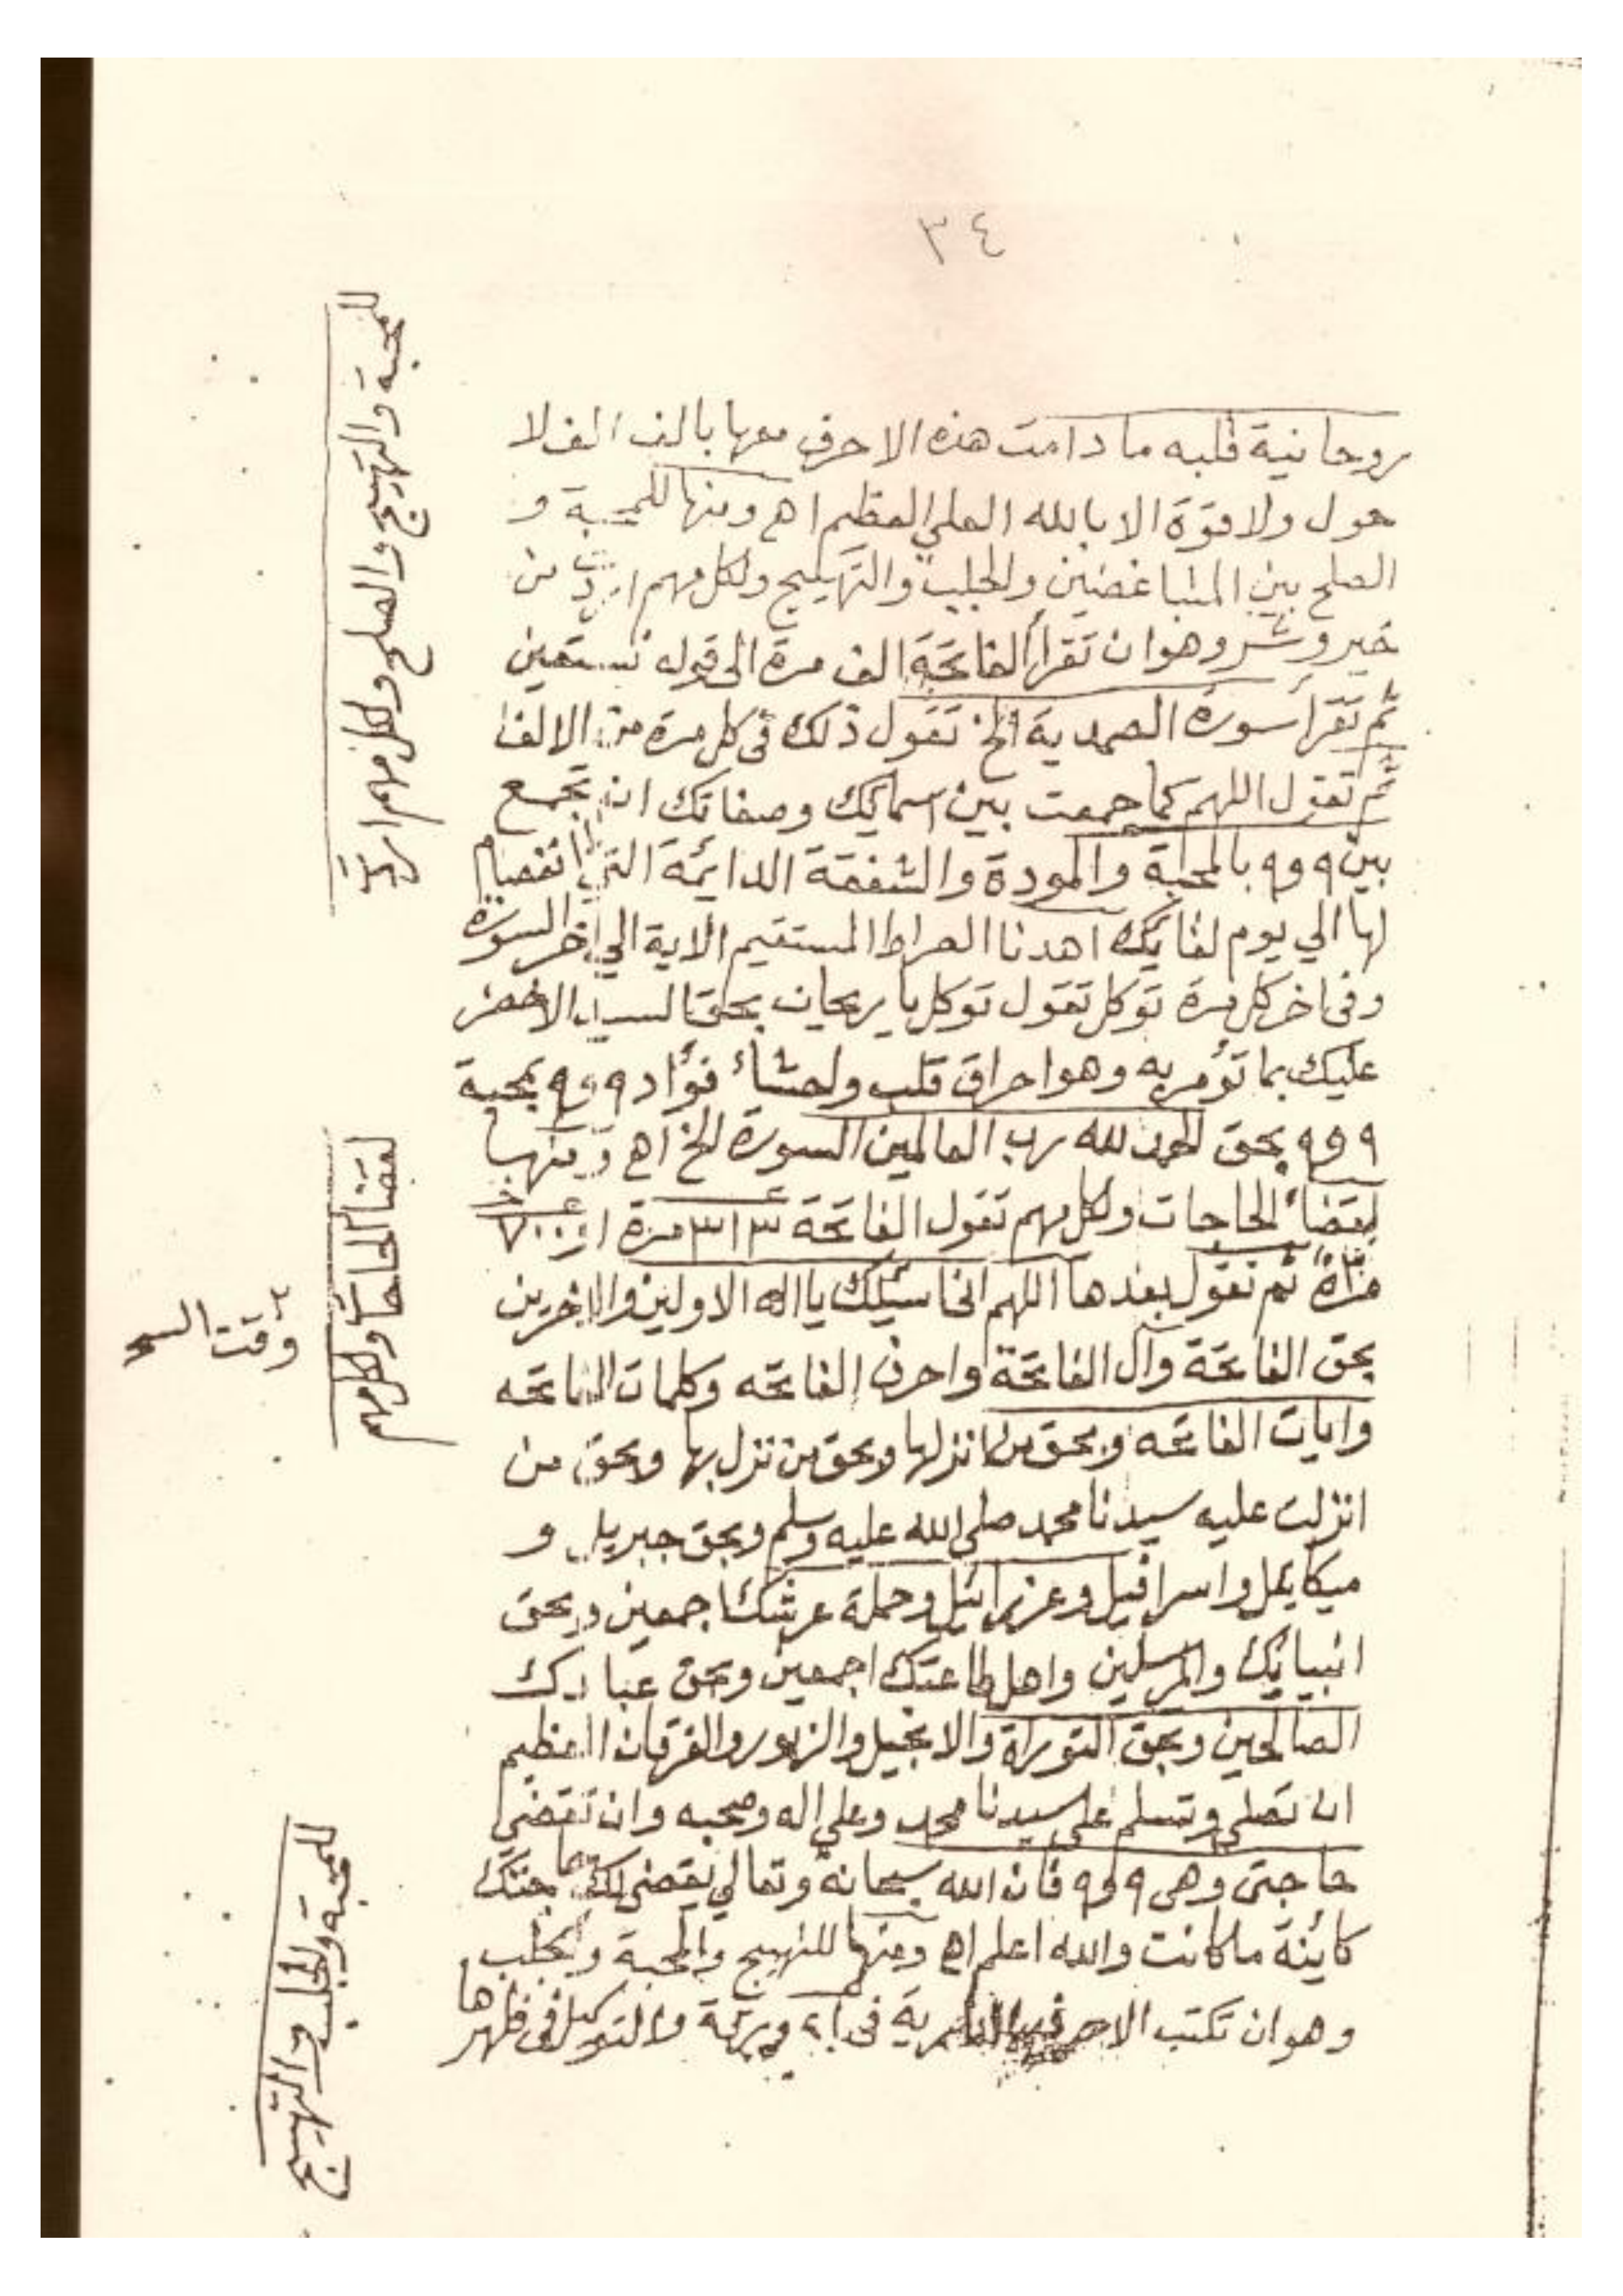 ٣٤
روحانية قلبه ما دامت هذه الاحرف معها بالف الف لا
حول ولا قوة الا بالله العلي العظيم اهـ ومنها للمحبة و
الصلح بين المتباغضين والجلب والتهييج ولكل مهم اردت من
خير وشر وهو ان تقرأ الفاتحة الف مرة الى قوله نستعين
ثم تقرأ سورة الصمدية الخ تقول ذلك في كل مرة من الالف
ثم تقول اللهم كما جمعت بين اسمائك وصفاتك ان تجمع
بين ٩ و٩ بالمحبة والمودة والشفقة الدائمة التي لا انفصام
لها الي يوم لقائك اهدنا الصراط المستقيم الاية الي اخر السورة
وفى اخر كل مرة توكل تقول توكل يا ريحان بحق السيد الاخضر
عليك بما تؤمر به وهو احراق قلب واحشاء فؤاد ٩ و٩ بمحبة
٩ و٩ بحق الحمد لله رب العالمين السورة الخ اهـ ومنها
لقضاء الحاجات ولكل مهم تقول الفاتحة ٣١٣ مرة او
مرة ثم تقول بعدها اللهم اني اسئلك يا اله الاولين والاخرين
بحق الفاتحة وآل الفاتحة واحرف الفاتحه وكلمات الفاتحه
وايات الفاتحه وبحق من انزلها وبحق من نزل بها وبحق من
انزلت عليه سيدنا محمد صلى الله عليه وسلم وبحق جبريل و
ميكايل واسرافيل وعزرائيل وحملة عرشك اجمعين وبحق
انبيائك والمرسلين واهل طاعتك اجمعين وبحق عبادك
الصالحين وبحق التوراة والانجيل والزبور والفرقان العظيم
ان تصلي وتسلم على سيدنا محمد وعلي اله وصحبه وان تقضي
حاجتى وهى ٩ و٩ فان الله سبحانه وتعالي يقضى لك حاجتك
كائنة ما كانت والله اعلم اهـ ومنها للتهييج والمحبة والجلب
وهو ان تكتب الاحرف النارية فى والتوكيل فى ظهرها
للمحبة والتهييج والصلح ولكل مهم اردت
لقضاء الحاجات ولكل مهم
وقت السحر
للمحبة والجلب والتهييج